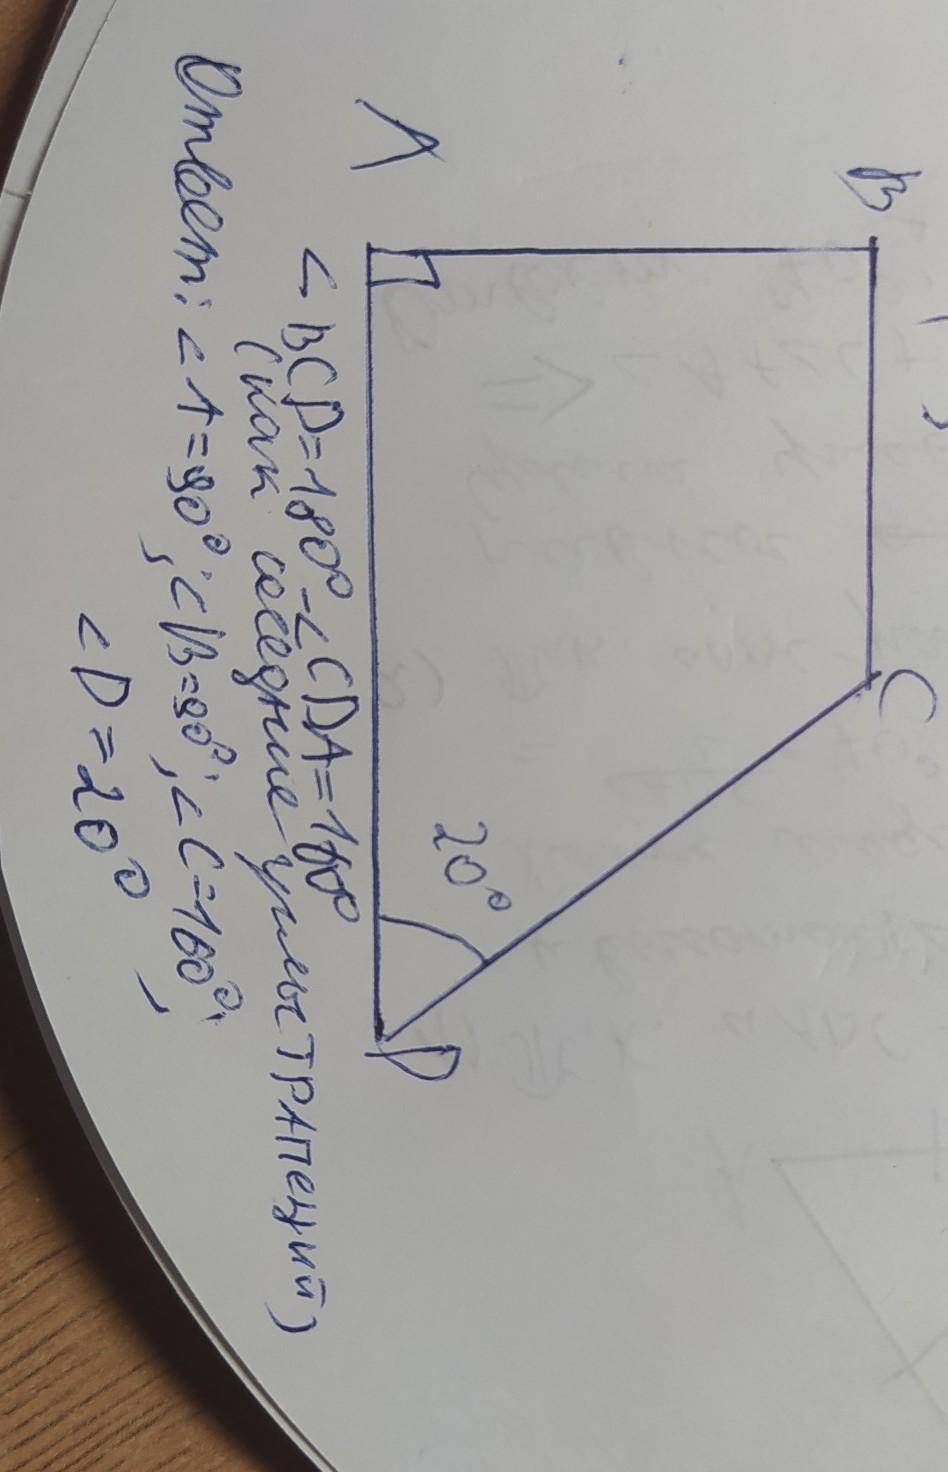 B
C
A
D
20°
∠BCD=180°-∠CDA=160°
(как соседние углы ТРАПЕЦИЙ)
Ответ: ∠A=90°; ∠B=90°; ∠C=160°;
∠D=20°